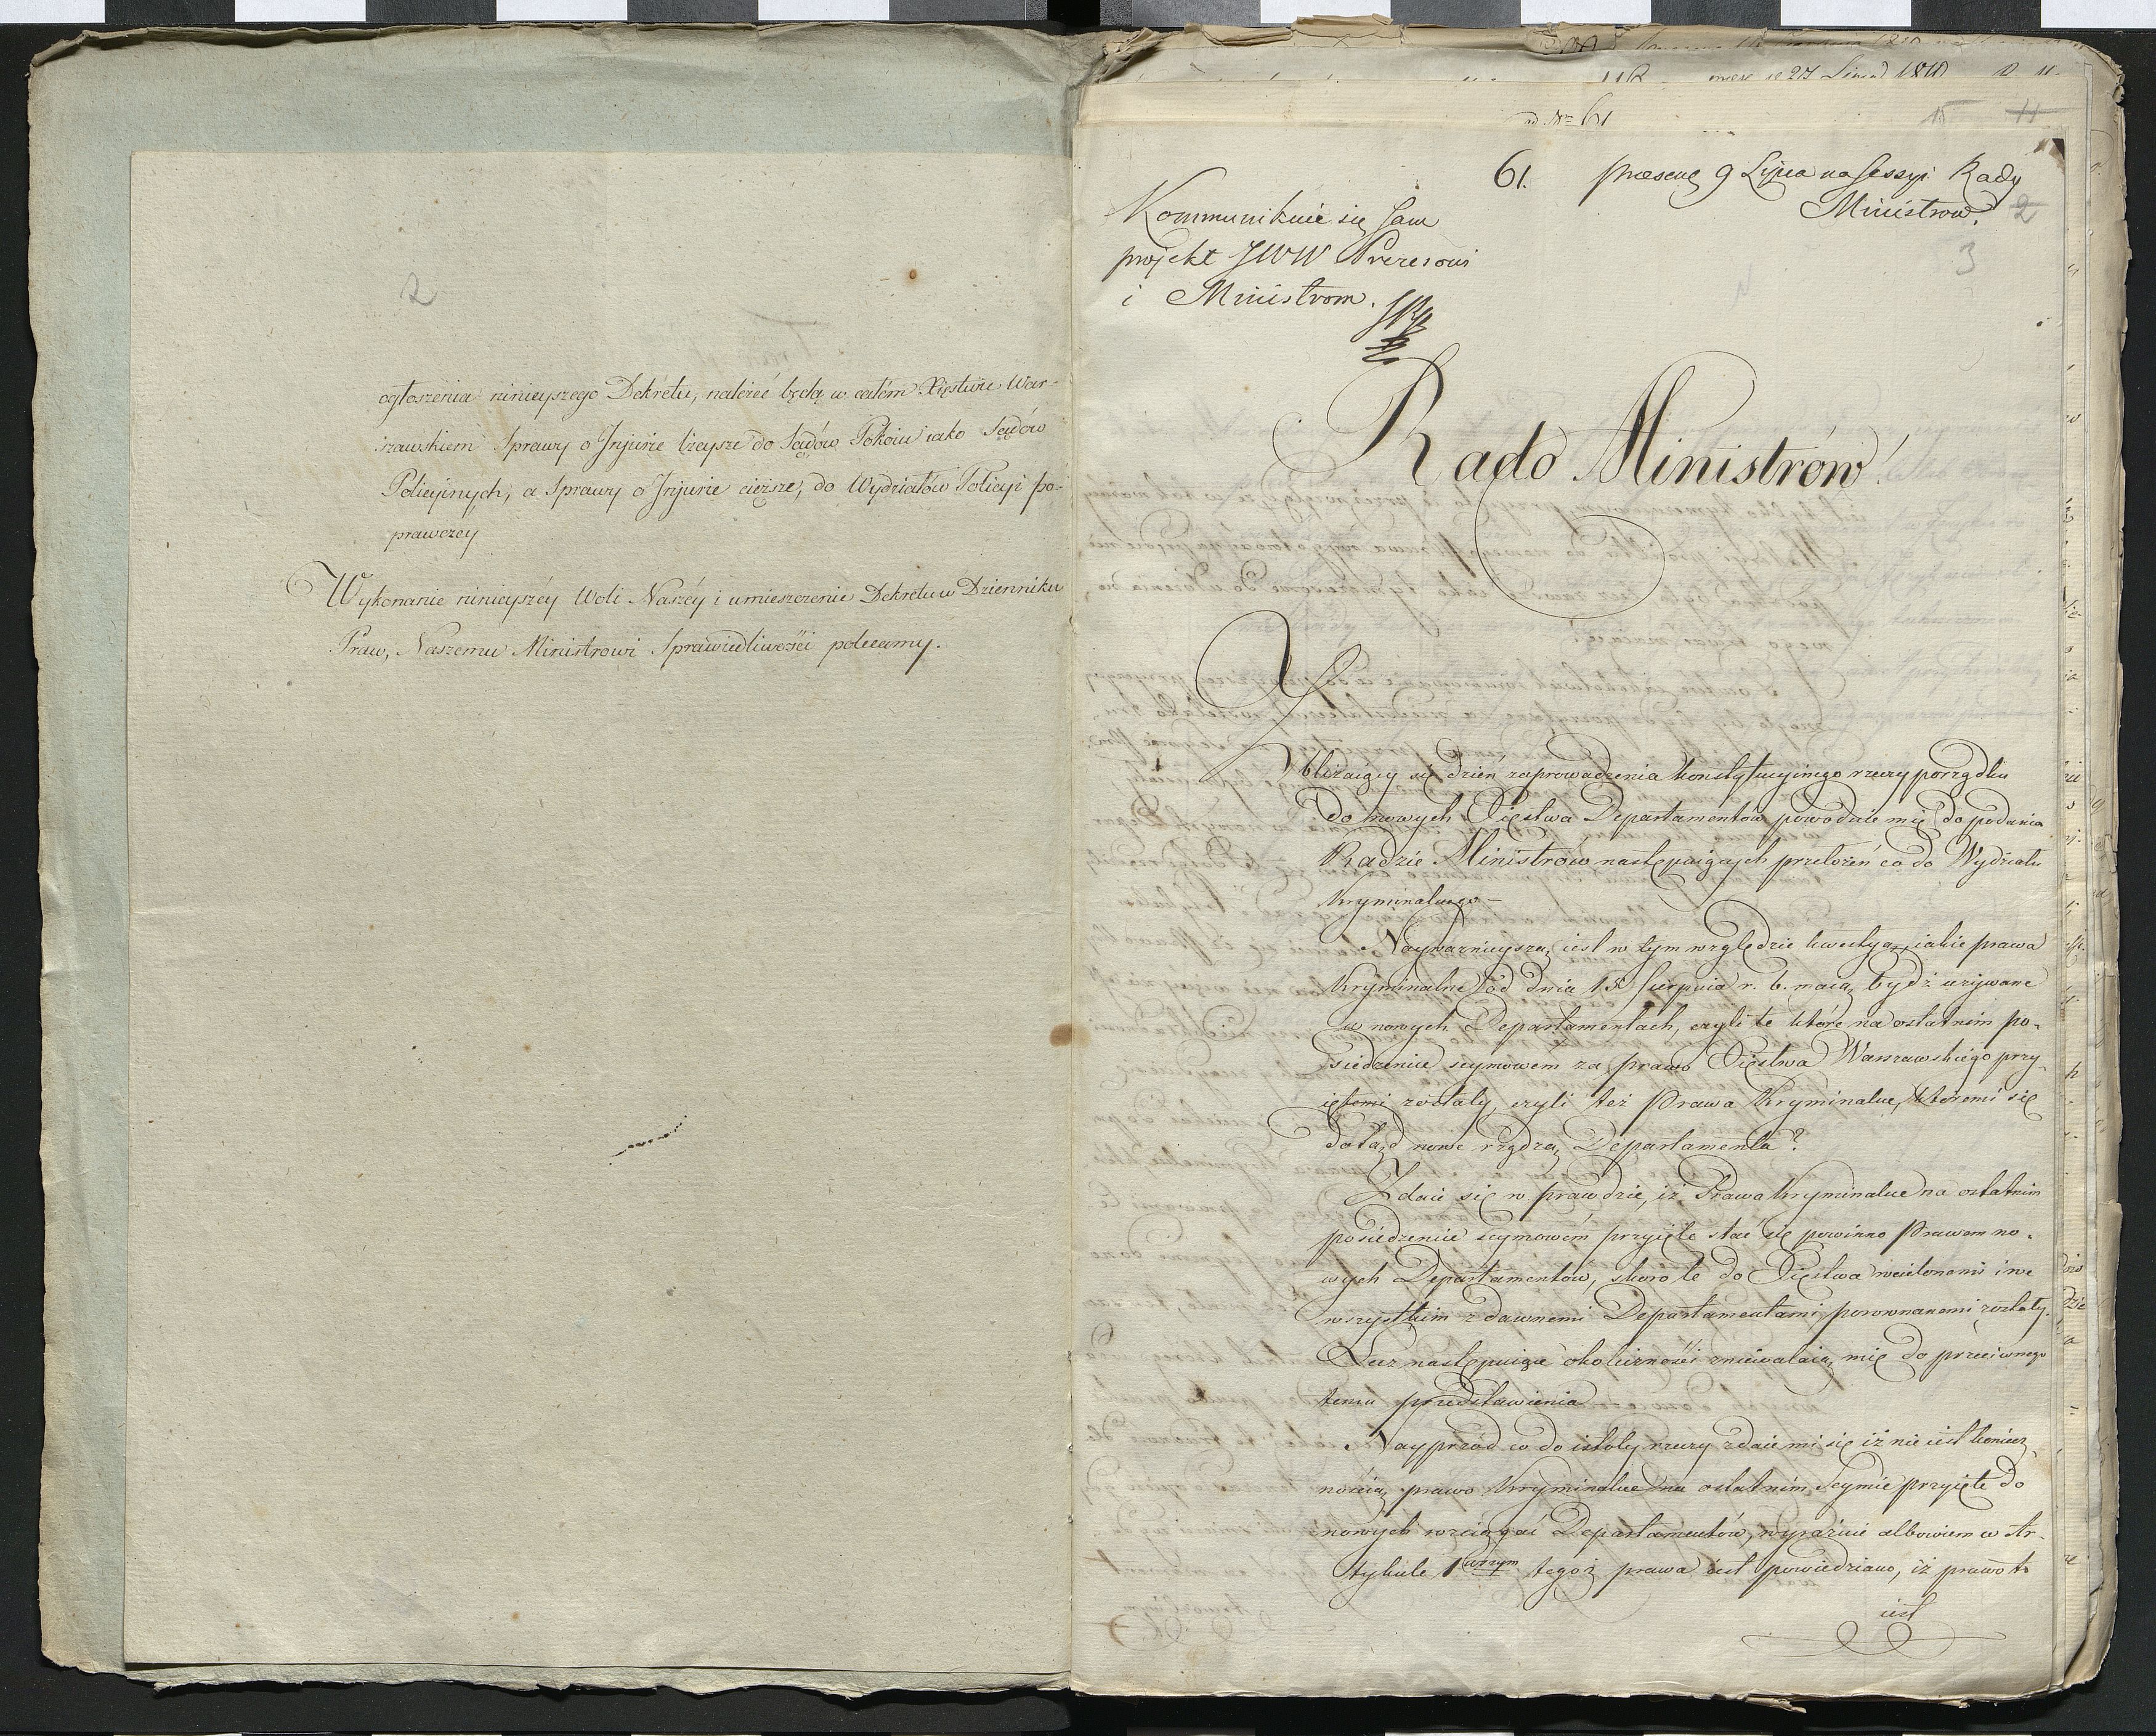 2
ogłoszenia ninieyszego Dekretu, należeć będą w całém Xięstwie War-
szawskiem Sprawy o Injurie lżeysze do Sądów Pokoiu iako Sądów
Policyinych, a Sprawy o Injurie cięższe, do Wydziałów Policyi po-
prawczey
Wykonanie ninieyszéy Woli Naszéy i umieszczenie Dekretu w Dzienniku
Praw, Naszemu Ministrowi Sprawiedliwości polecamy.
27 1810
ad Nro 61
15 11
61. praesent 9 Lipca na Sessyi Rady
Ministrow. 2
3
Kommunikuie się Sam
projekt JWW Prezesowi
i Ministrom.
Rado Ministrów!
Zbliżaiący się dzień zaprowadzenia konstytucyinego rzeczy porządku
do nowych Xięstwa Departamentów powoduie mię do podania
Radzie Ministrów następuiących przełożeń co do Wydziału
Kryminalnego –
Nayważnieyszą iest w tym względzie kwestyą, iakie prawa
Kryminalne od dnia 15 Sierpnia r. b. maią bydź używane
w nowych Departamentach, czyli te które na ostatnim po-
siedzeniu seymowem za prawo Xięstwa Warszawskiego przy-
iętemi zostały, czyli też Prawa Kryminalne, któremi się
dotąd nowe rządzą Departamenta?
Zdaie się w prawdzie, iż Prawo Kryminalne na ostatnim
posiedzeniu seymowém przyięte stać się powinno Prawem no-
wych Departamentów, skoro te do Xięstwa wcielonemi i we
wszystkim z dawnemi Departamentami porownanemi zostały.
Lecz następuiące okoliczności zniewalaią mię do przeciwnego
temu przedstawienia
Nayprzód co do istoty rzeczy zdaie mi się iż nie iest koniecz-
nością prawo Kryminalne na ostatnim Seymie przyięte do
nowych wciągać Departamentów, wyraźnie albowiem w Ar-
tykule 1wszym tegoż prawa iest powiedziano, iż prawo to
iest